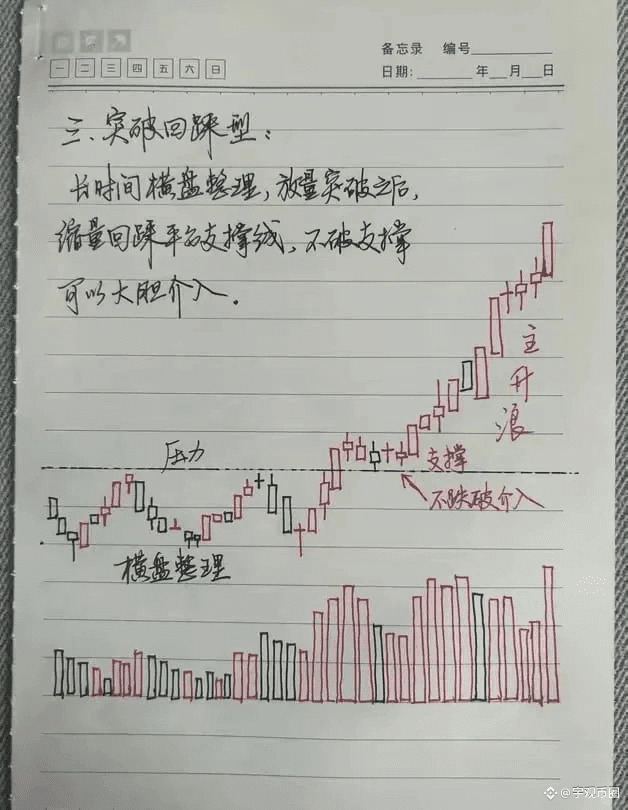 备忘录 编号
一 二 三 四 五 六 日
日期: 年 月 日
三、突破回踩型:
长时间横盘整理,放量突破之后,
缩量回踩平台支撑线,不破支撑
可以大胆介入.
主升浪
压力
支撑
不跌破介入
横盘整理
@宇观币圈